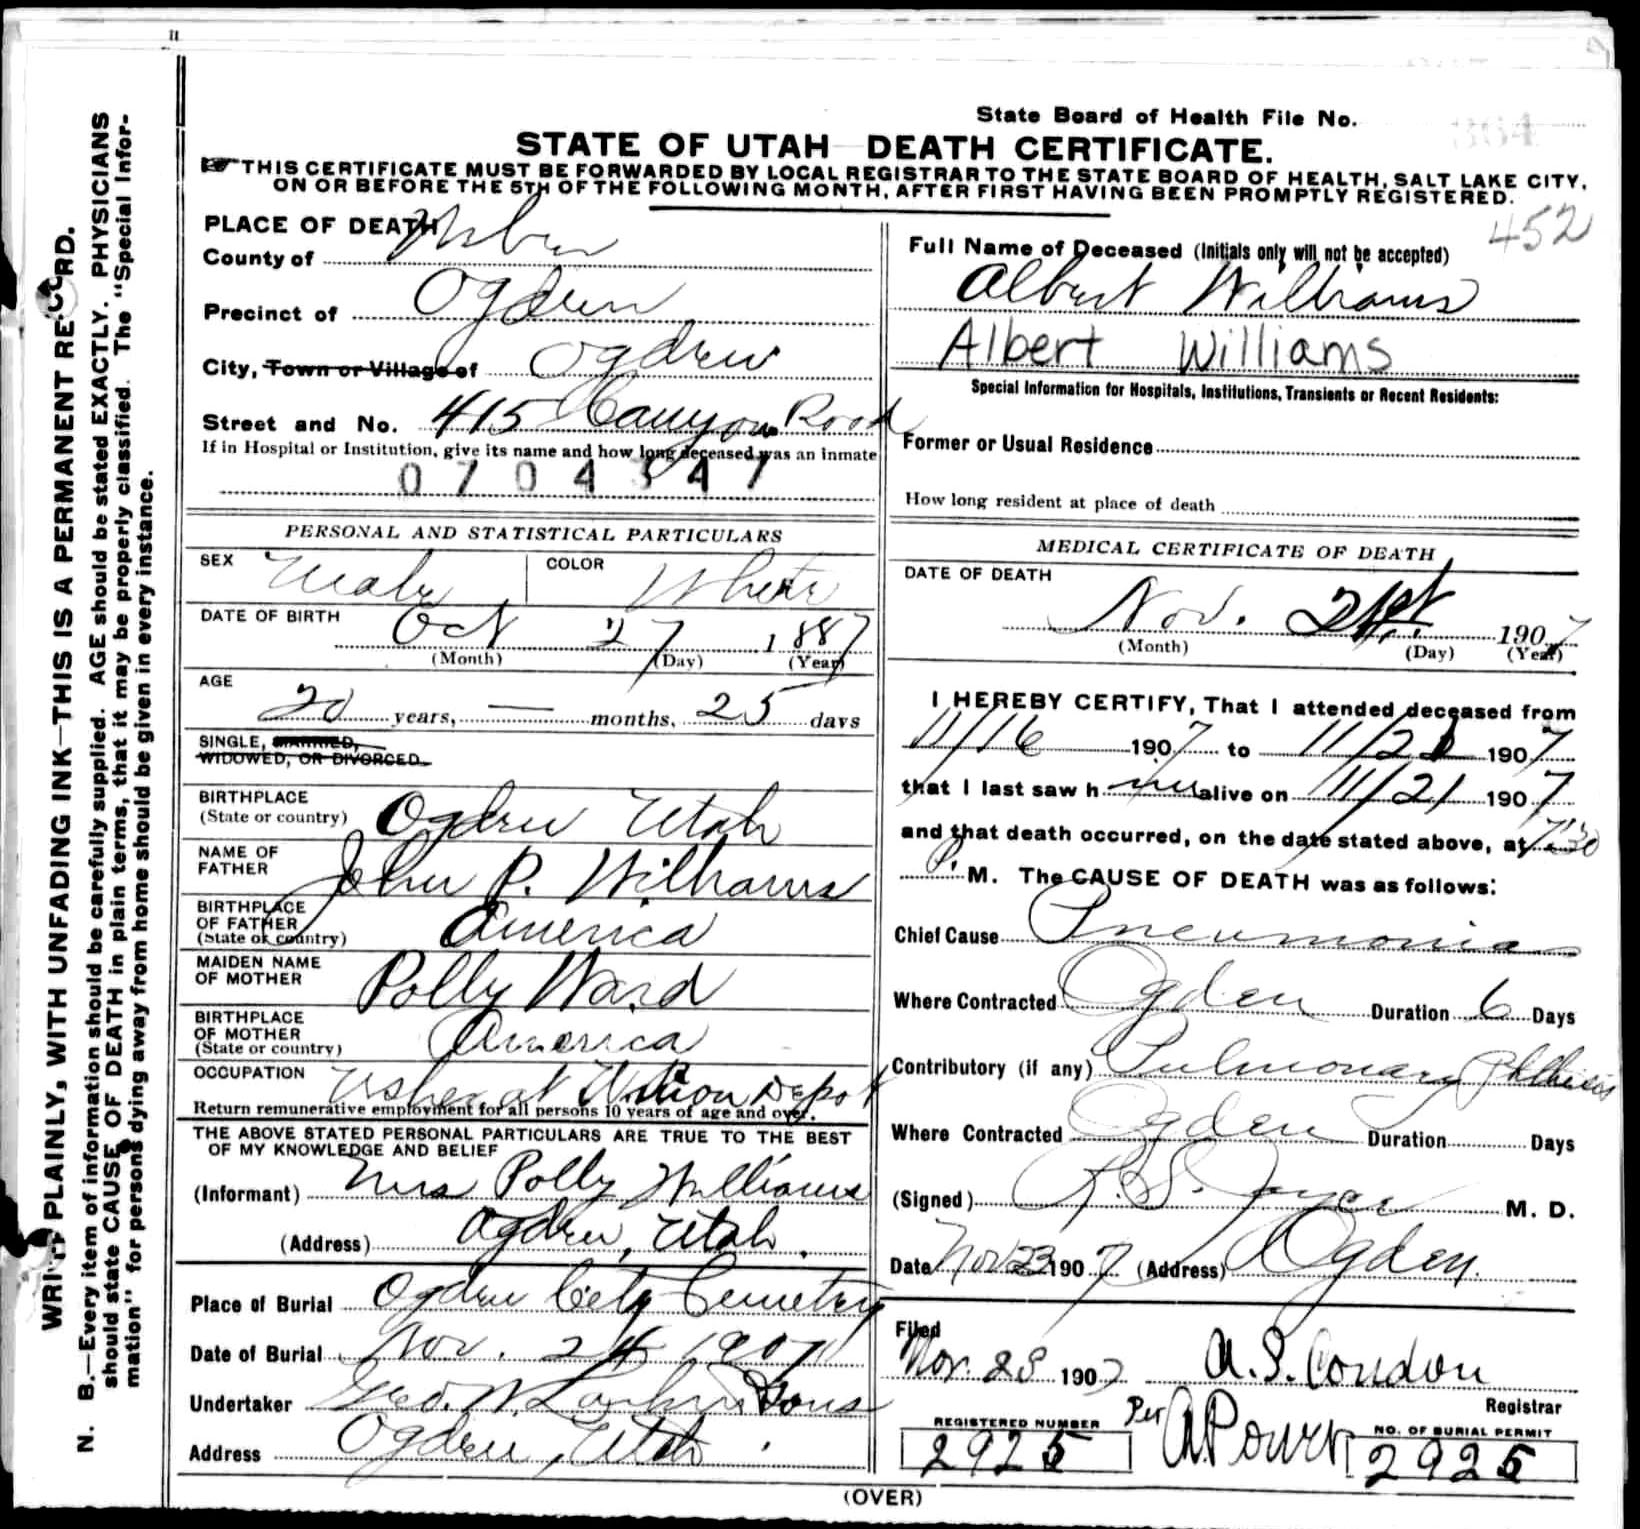 State Board of Health File No. 364
STATE OF UTAH DEATH CERTIFICATE.
THIS CERTIFICATE MUST BE FORWARDED BY LOCAL REGISTRAR TO THE STATE BOARD OF HEALTH, SALT LAKE CITY,
ON OR BEFORE THE 5TH OF THE FOLLOWING MONTH, AFTER FIRST HAVING BEEN PROMPTLY REGISTERED.
452
WRITE PLAINLY, WITH UNFADING INK—THIS IS A PERMANENT RECORD.
N. B.—Every item of information should be carefully supplied. AGE should be stated EXACTLY. PHYSICIANS
should state CAUSE OF DEATH in plain terms, that it may be properly classified. The "Special Infor-
mation" for persons dying away from home should be given in every instance.
PLACE OF DEATH
County of Weber
Precinct of Ogden
City, Town or Village of Ogden
Street and No. 415 Canyon Road
If in Hospital or Institution, give its name and how long deceased was an inmate
0704347
PERSONAL AND STATISTICAL PARTICULARS
SEX Male COLOR White
DATE OF BIRTH Oct 27 1887
(Month) (Day) (Year)
AGE
20 years, — months, 25 days
SINGLE, MARRIED,
WIDOWED, OR DIVORCED
BIRTHPLACE
(State or country) Ogden Utah
NAME OF
FATHER John P. Williams
BIRTHPLACE
OF FATHER
(State or country) America
MAIDEN NAME
OF MOTHER Polly Ward
BIRTHPLACE
OF MOTHER
(State or country) America
OCCUPATION Usher at Union Depot
Return remunerative employment for all persons 10 years of age and over.
THE ABOVE STATED PERSONAL PARTICULARS ARE TRUE TO THE BEST
OF MY KNOWLEDGE AND BELIEF
(Informant) Mrs Polly Williams
(Address) Ogden, Utah.
Place of Burial Ogden City Cemetery
Date of Burial Nov. 24 1907
Undertaker Geo. W. Larkin Sons
Address Ogden, Utah.
Full Name of Deceased (Initials only will not be accepted)
Albert Williams
Albert Williams
Special Information for Hospitals, Institutions, Transients or Recent Residents:
Former or Usual Residence
How long resident at place of death
MEDICAL CERTIFICATE OF DEATH
DATE OF DEATH
Nov. 21st 1907
(Month) (Day) (Year)
I HEREBY CERTIFY, That I attended deceased from
11/16 1907 to 11/21 1907
that I last saw him alive on 11/21 1907
and that death occurred, on the date stated above, at 7:30
P. M. The CAUSE OF DEATH was as follows:
Chief Cause Pneumonia
Where Contracted Ogden Duration 6 Days
Contributory (if any) Pulmonary Phthisis
Where Contracted Ogden Duration Days
(Signed) R. S. Joyce M. D.
Date Nov 23 1907 (Address) Ogden.
Filed
Nov. 23 1907 A. S. Condon
Registrar
Per A Power
REGISTERED NUMBER
2925
NO. OF BURIAL PERMIT
2925
(OVER)